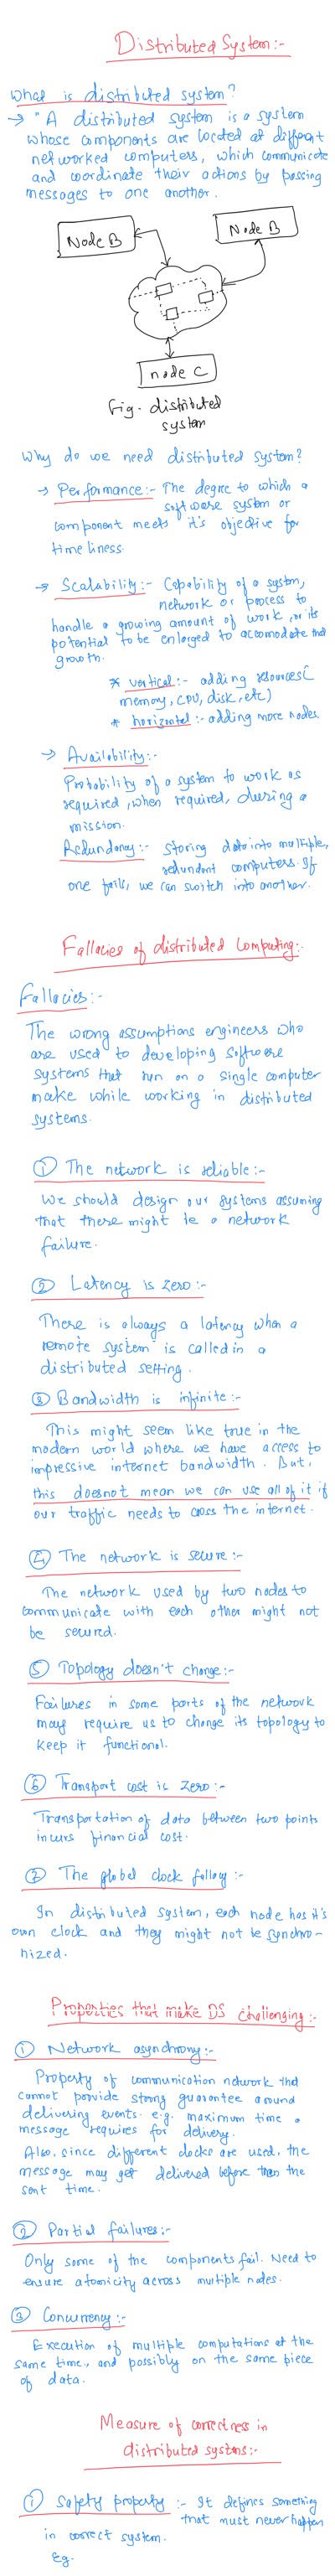 Distributed System:-
What is distributed system?
→ "A distributed system is a system
whose components are located at different
networked computers, which communicate
and coordinate their actions by passing
messages to one another.
Node B
Node B
node C
Fig. distributed
system
Why do we need distributed system?
→ Performance:- The degree to which a
software system or
component meets it's objective for
timeliness.
→ Scalability:- Capability of a system,
network or process to
handle a growing amount of work, or its
potential to be enlarged to accomodate that
growth.
* vertical:- adding resources(
memory, CPU, disk, etc)
* horizontal:- adding more nodes.
→ Availability:-
Probability of a system to work as
required, when required, during a
mission.
Redundancy:- storing data into multiple,
redundant computers. If
one fails, we can switch into another.
Fallacies of distributed computing:-
Fallacies:-
The wrong assumptions engineers who
are used to developing software
systems that run on a single computer
make while working in distributed
systems.
① The network is reliable:-
We should design our systems assuming
that there might be a network
failure.
② Latency is zero:-
There is always a latency when a
remote system is called in a
distributed setting.
③ Bandwidth is infinite:-
This might seem like true in the
modern world where we have access to
impressive internet bandwidth. But,
this doesnot mean we can use all of it if
our traffic needs to cross the internet.
④ The network is secure:-
The network used by two nodes to
communicate with each other might not
be secured.
⑤ Topology doesn't change:-
Failures in some parts of the network
may require us to change its topology to
keep it functional.
⑥ Transport cost is zero:-
Transportation of data between two points
incurs financial cost.
⑦ The global clock fallacy:-
In distributed system, each node has it's
own clock and they might not be synchro-
nized.
Properties that make DS challenging:-
① Network asynchrony:-
Property of communication network that
cannot porvide strong guarantee around
delivering events. e.g. maximum time a
message requires for delivery.
Also, since different clocks are used, the
message may get delivered before than the
sent time.
② Partial failures:-
Only some of the components fail. Need to
ensure atomicity across multiple nodes.
③ Concurrency:-
Execution of multiple computations at the
same time, and possibly on the same piece
of data.
Measure of correctness in
distributed systems:-
① Safety property :- It defines something
that must never happen
in correct system.
Eg.